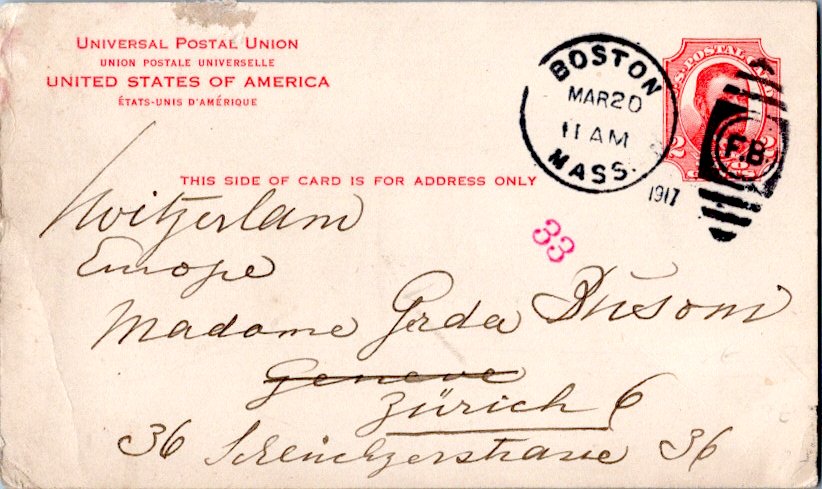 UNIVERSAL POSTAL UNION
UNION POSTALE UNIVERSELLE
UNITED STATES OF AMERICA
ÉTATS-UNIS D'AMÉRIQUE
U.S. POSTAL
2
BOSTON
MAR 20
11 AM
MASS.
1917
F.B.
THIS SIDE OF CARD IS FOR ADDRESS ONLY
33
Switzerland
Europe
Madame Gerda Busoni
Geneve
Zürich 6
36 Scheuchzerstrasse 36